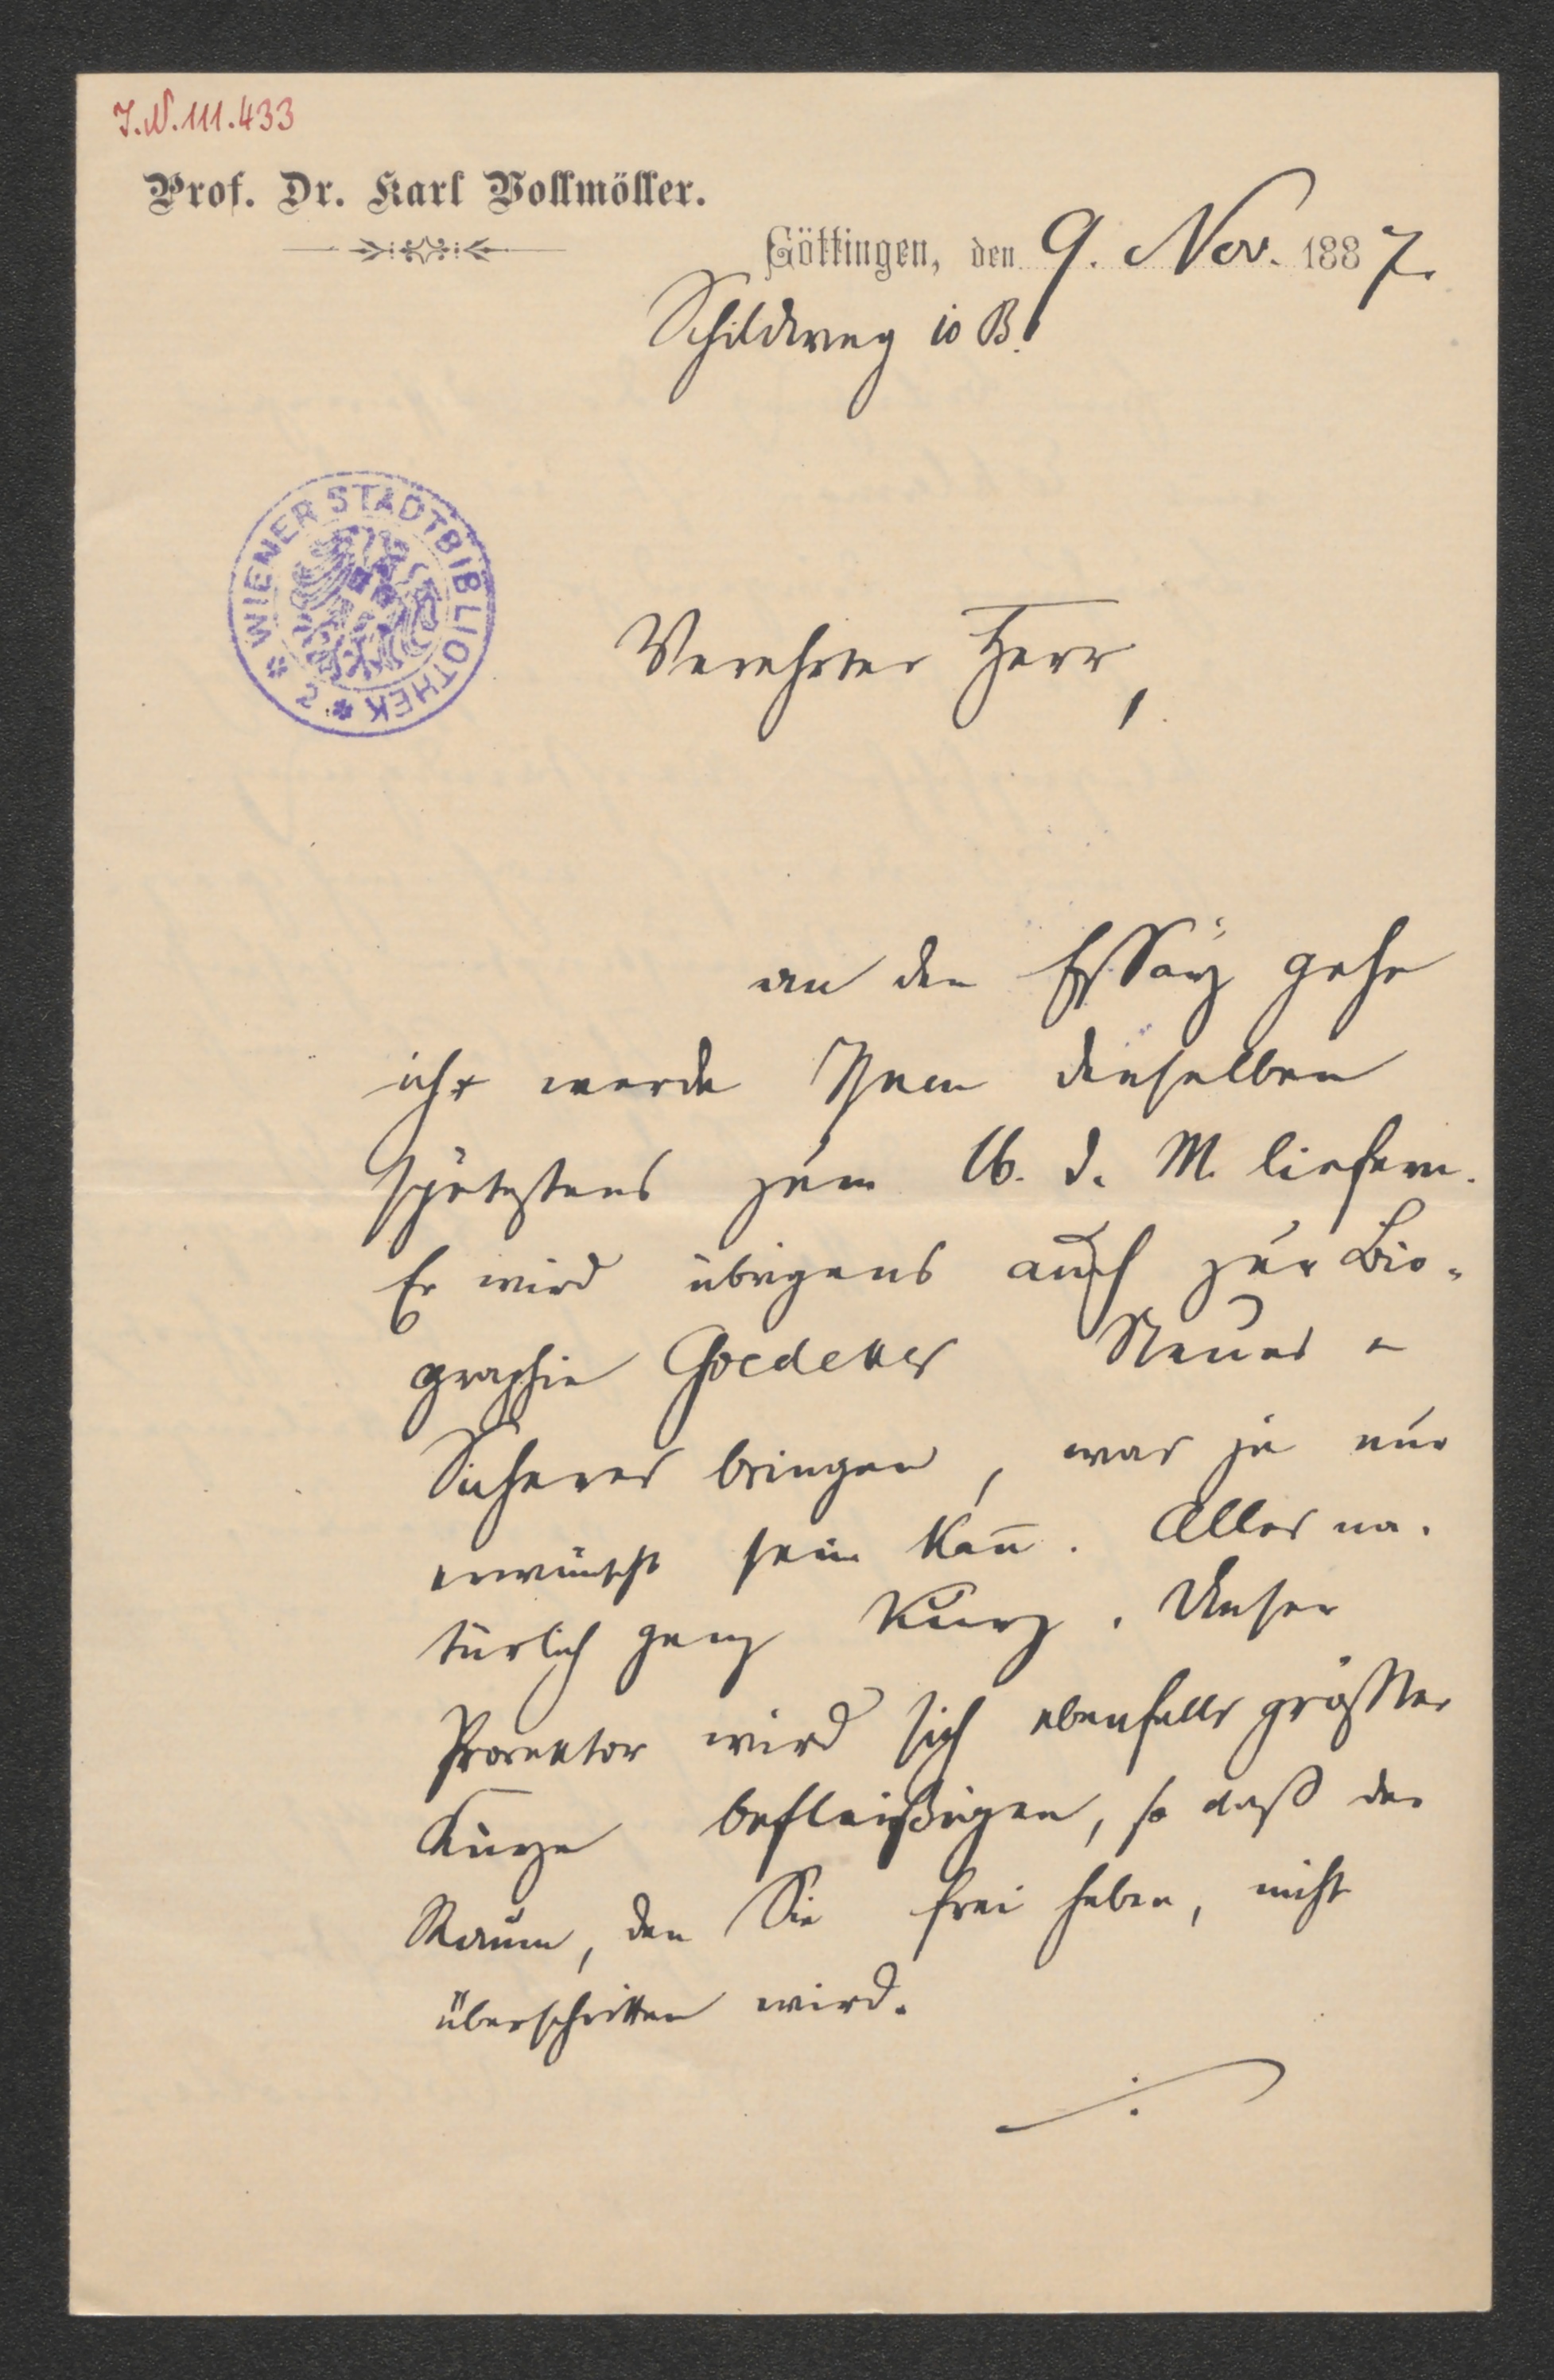 J.N. 111.433
Prof. Dr. Karl Vollmöller.
Göttingen, den 9. Nov. 1887.
Schildweg 10 B.
* WIENER STADTBIBLIOTHEK * 2
Verehrter Herr,
an den Essay gehe
ich + werde Ihnen denselben
spätestens zum 16. d. M. liefern.
Er wird übrigens auch zur Bio-
graphie Goedekes Neues +
Sicheres bringen, was ja nur
erwünscht sein kann. Alles na-
türlich ganz kurz. Unser
Prorektor wird sich ebenfalls größter
Kürze befleißigen, so daß der
Raum, den Sie frei haben, nicht
überschritten wird.